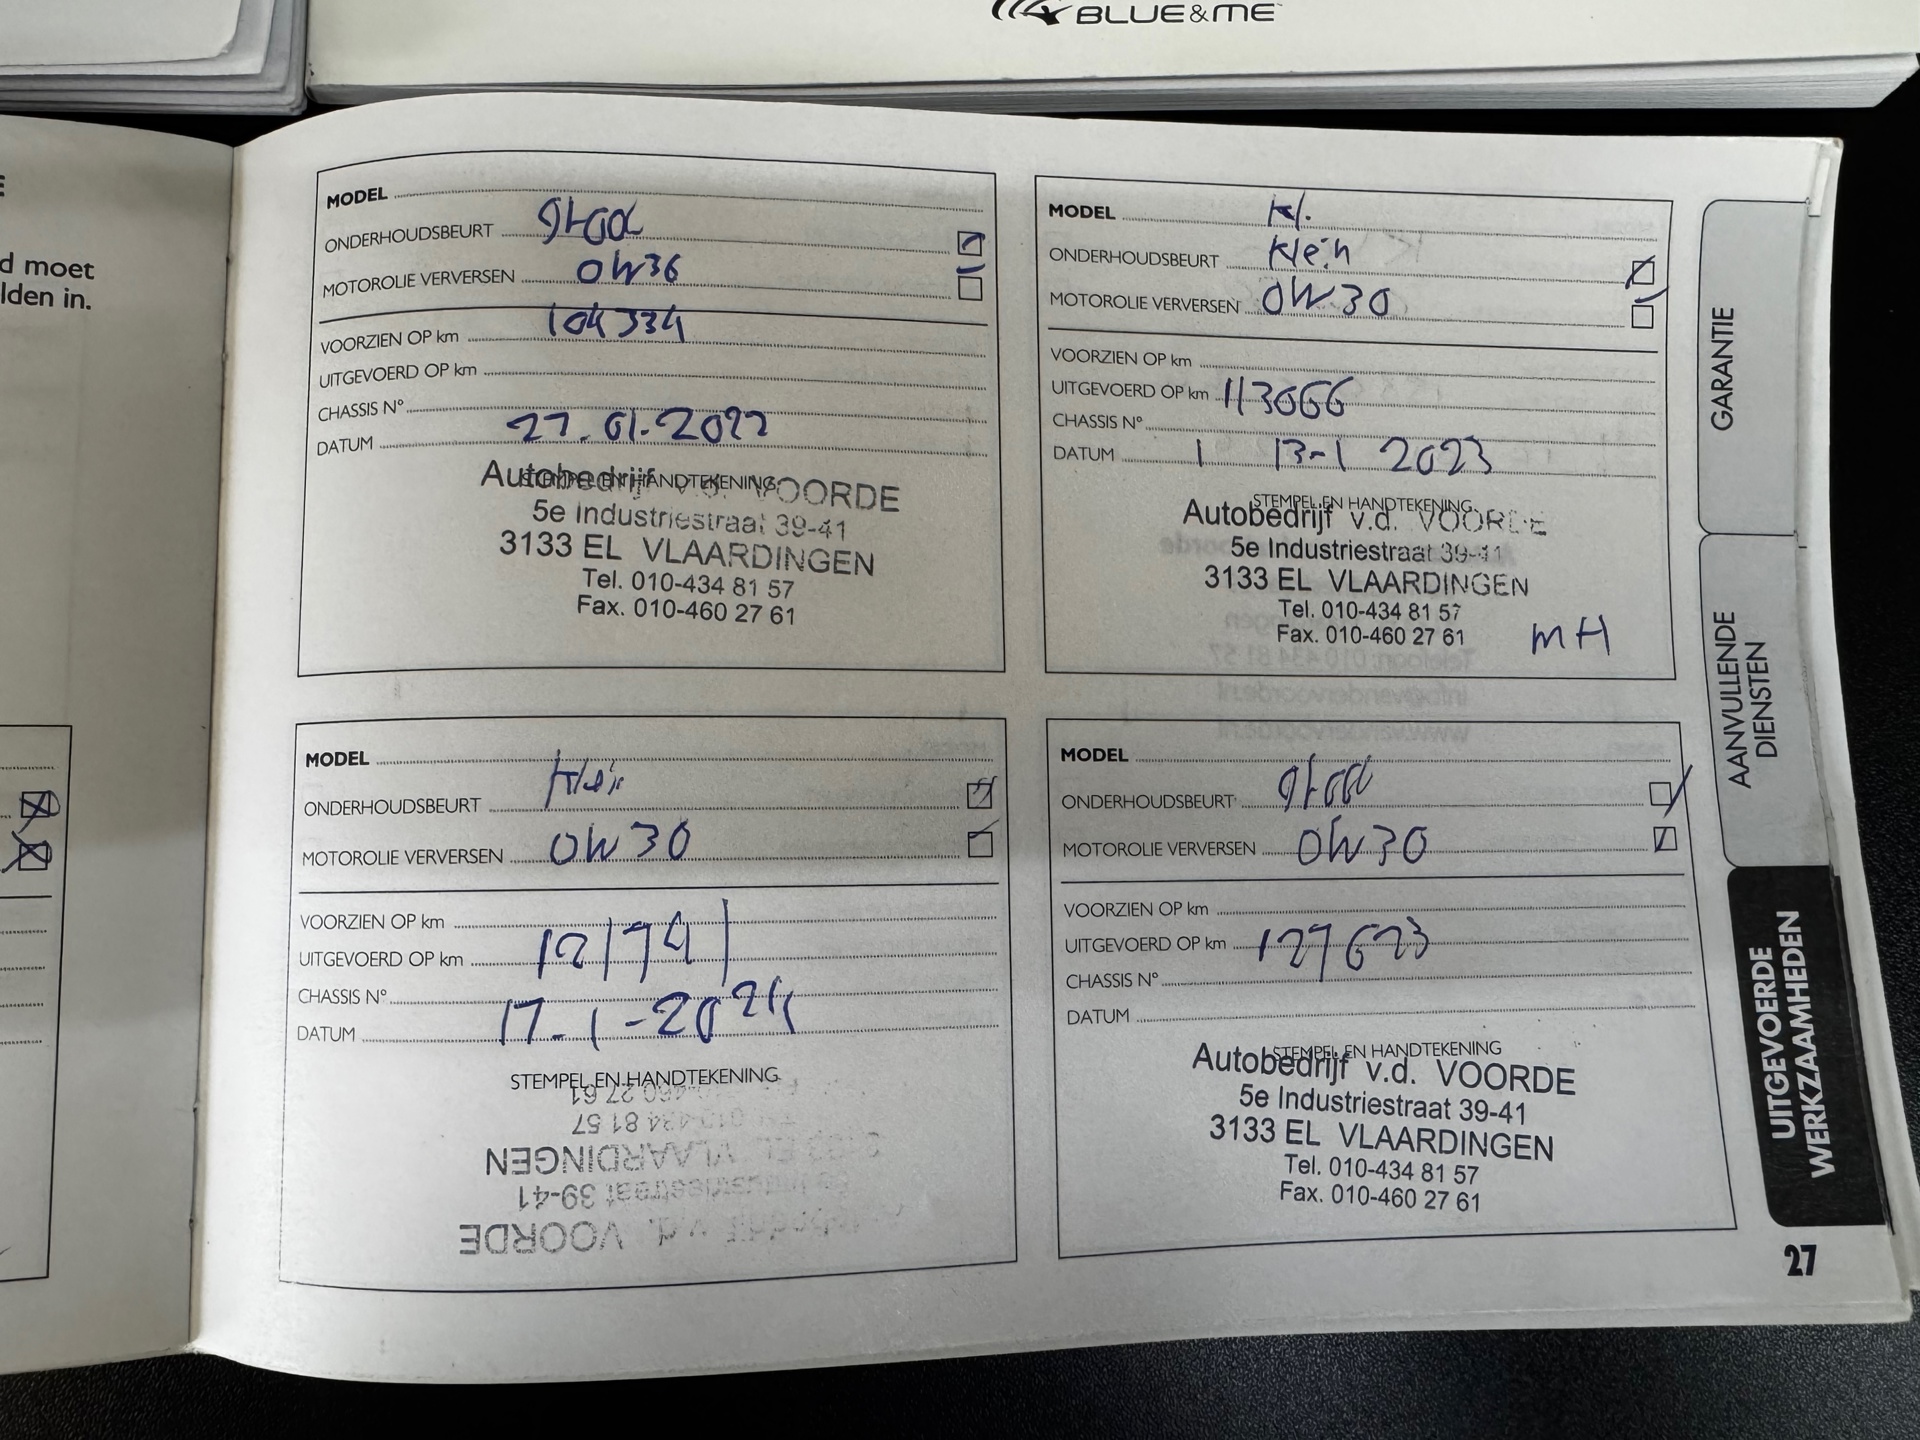 BLUE&ME
E
d moet
lden in.
MODEL
ONDERHOUDSBEURT groot
MOTOROLIE VERVERSEN 0W30
VOORZIEN OP km 104334
UITGEVOERD OP km
CHASSIS N°
DATUM 27-01-2022
STEMPEL EN HANDTEKENING
Autobedrijf v.d. VOORDE
5e Industriestraat 39-41
3133 EL VLAARDINGEN
Tel. 010-434 81 57
Fax. 010-460 27 61
MODEL Kl.
ONDERHOUDSBEURT Klein
MOTOROLIE VERVERSEN 0W30
VOORZIEN OP km
UITGEVOERD OP km 113066
CHASSIS N°
DATUM 13-1 2023
STEMPEL EN HANDTEKENING
Autobedrijf v.d. VOORDE
5e Industriestraat 39-41
3133 EL VLAARDINGEN
Tel. 010-434 81 57
Fax. 010-460 27 61
MH
MODEL
ONDERHOUDSBEURT Klein
MOTOROLIE VERVERSEN 0W30
VOORZIEN OP km
UITGEVOERD OP km 121741
CHASSIS N°
DATUM 17-1-2024
STEMPEL EN HANDTEKENING
Autobedrijf v.d. VOORDE
5e Industriestraat 39-41
3133 EL VLAARDINGEN
Tel. 010-434 81 57
Fax. 010-460 27 61
MODEL
ONDERHOUDSBEURT groot
MOTOROLIE VERVERSEN 0W30
VOORZIEN OP km
UITGEVOERD OP km 127623
CHASSIS N°
DATUM
STEMPEL EN HANDTEKENING
Autobedrijf v.d. VOORDE
5e Industriestraat 39-41
3133 EL VLAARDINGEN
Tel. 010-434 81 57
Fax. 010-460 27 61
GARANTIE
AANVULLENDE
DIENSTEN
UITGEVOERDE
WERKZAAMHEDEN
27